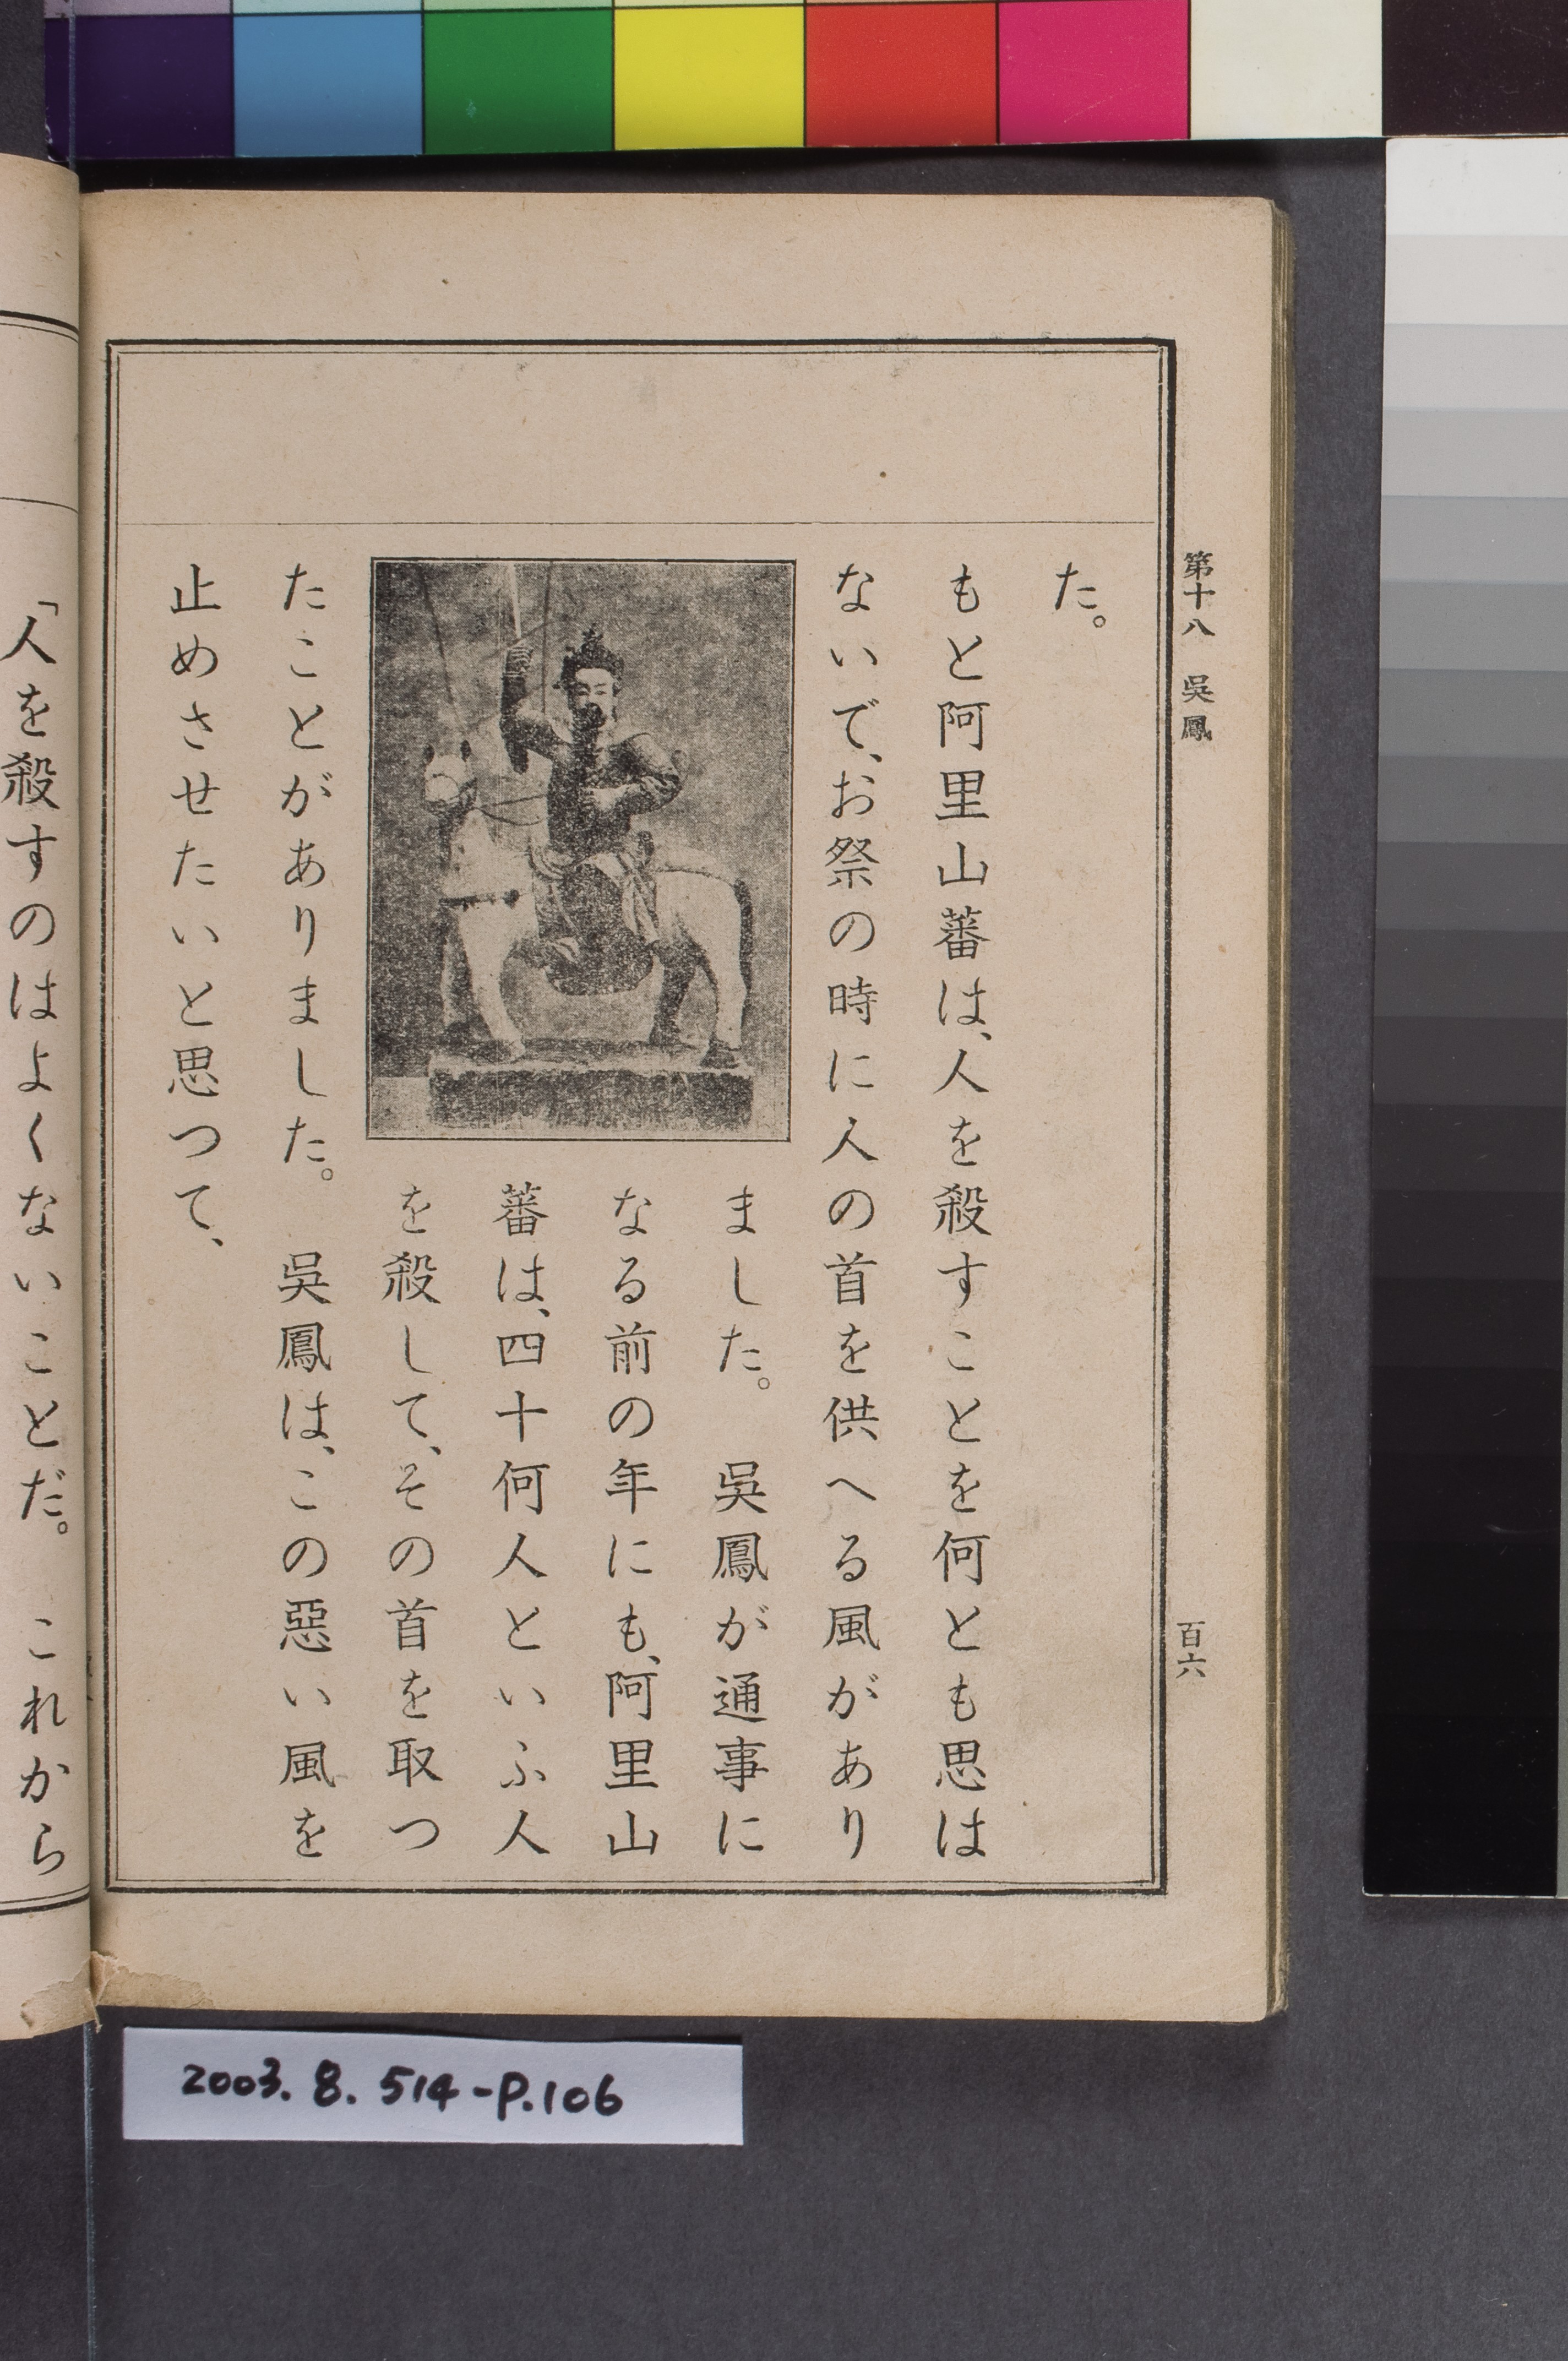 第十八 吳鳳
百六
た。
もと阿里山蕃は、人を殺すことを何とも思は
ないで、お祭の時に人の首を供へる風があり
ました。 吳鳳が通事に
なる前の年にも、阿里山
蕃は、四十何人といふ人
を殺して、その首を取つ
たことがありました。 吳鳳は、この惡い風を
止めさせたいと思つて、
「人を殺すのはよくないことだ。 これから
2003.8.514-P.106